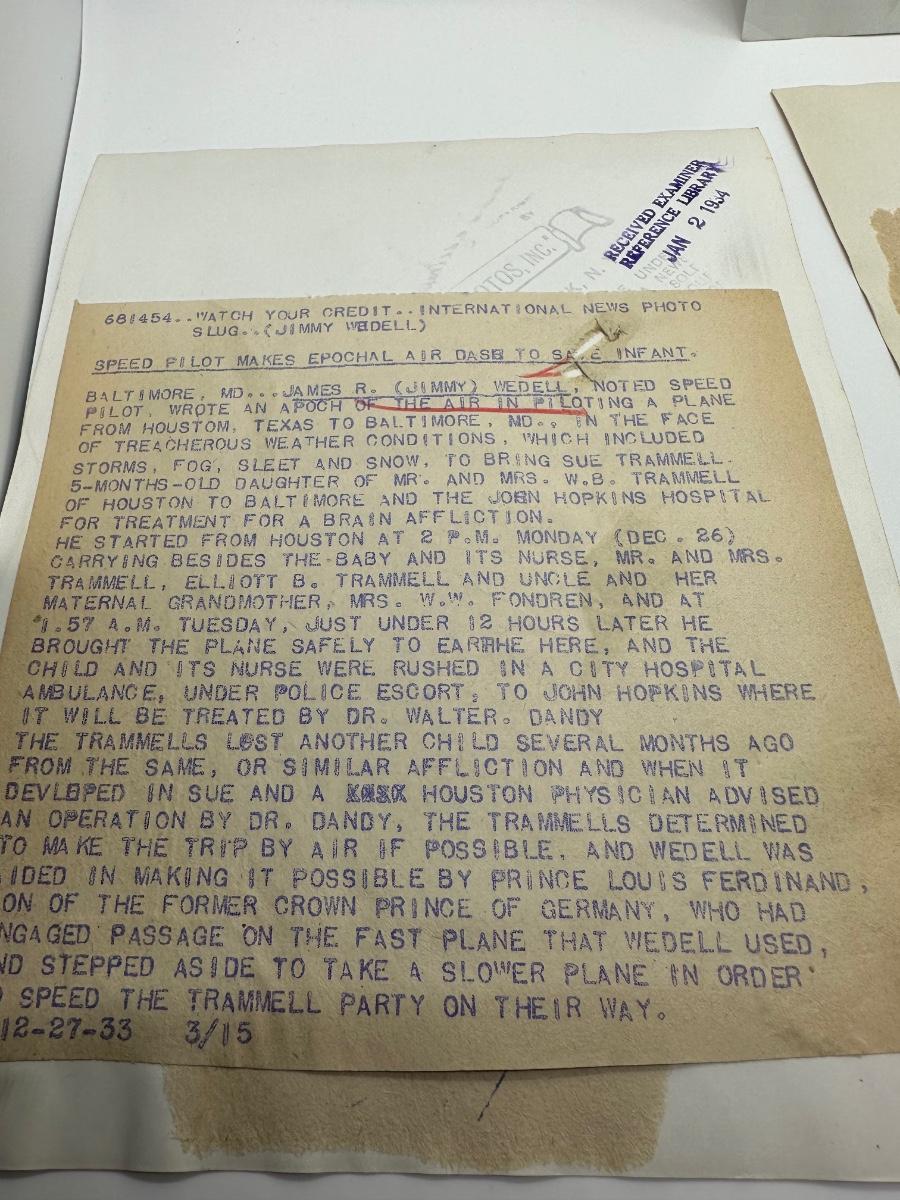 RECEIVED EXAMINER
REFERENCE LIBRARY
JAN 2 1934
OTOS, INC.
K, N.
681454..WATCH YOUR CREDIT..INTERNATIONAL NEWS PHOTO
SLUG..(JIMMY WEDELL)
SPEED PILOT MAKES EPOCHAL AIR DASH TO SAVE INFANT.
BALTIMORE, MD...JAMES R. (JIMMY) WEDELL, NOTED SPEED
PILOT, WROTE AN APOCH OF THE AIR IN PILOTING A PLANE
FROM HOUSTOM, TEXAS TO BALTIMORE, MD., IN THE FACE
OF TREACHEROUS WEATHER CONDITIONS, WHICH INCLUDED
STORMS, FOG, SLEET AND SNOW, TO BRING SUE TRAMMELL.
5-MONTHS-OLD DAUGHTER OF MR. AND MRS. W.B. TRAMMELL
OF HOUSTON TO BALTIMORE AND THE JOHN HOPKINS HOSPITAL
FOR TREATMENT FOR A BRAIN AFFLICTION.
HE STARTED FROM HOUSTON AT 2 P.M. MONDAY (DEC. 26)
CARRYING BESIDES THE BABY AND ITS NURSE, MR. AND MRS.
TRAMMELL, ELLIOTT B. TRAMMELL AND UNCLE AND HER
MATERNAL GRANDMOTHER, MRS. W.W. FONDREN, AND AT
1.57 A.M. TUESDAY, JUST UNDER 12 HOURS LATER HE
BROUGHT THE PLANE SAFELY TO EARTHHE HERE, AND THE
CHILD AND ITS NURSE WERE RUSHED IN A CITY HOSPITAL
AMBULANCE, UNDER POLICE ESCORT, TO JOHN HOPKINS WHERE
IT WILL BE TREATED BY DR. WALTER. DANDY
THE TRAMMELLS LOST ANOTHER CHILD SEVERAL MONTHS AGO
FROM THE SAME, OR SIMILAR AFFLICTION AND WHEN IT
DEVLOPED IN SUE AND A HOUSTON PHYSICIAN ADVISED
AN OPERATION BY DR. DANDY, THE TRAMMELLS DETERMINED
TO MAKE THE TRIP BY AIR IF POSSIBLE, AND WEDELL WAS
IDED IN MAKING IT POSSIBLE BY PRINCE LOUIS FERDINAND,
ON OF THE FORMER CROWN PRINCE OF GERMANY, WHO HAD
NGAGED PASSAGE ON THE FAST PLANE THAT WEDELL USED,
ND STEPPED ASIDE TO TAKE A SLOWER PLANE IN ORDER
SPEED THE TRAMMELL PARTY ON THEIR WAY.
12-27-33 3/15